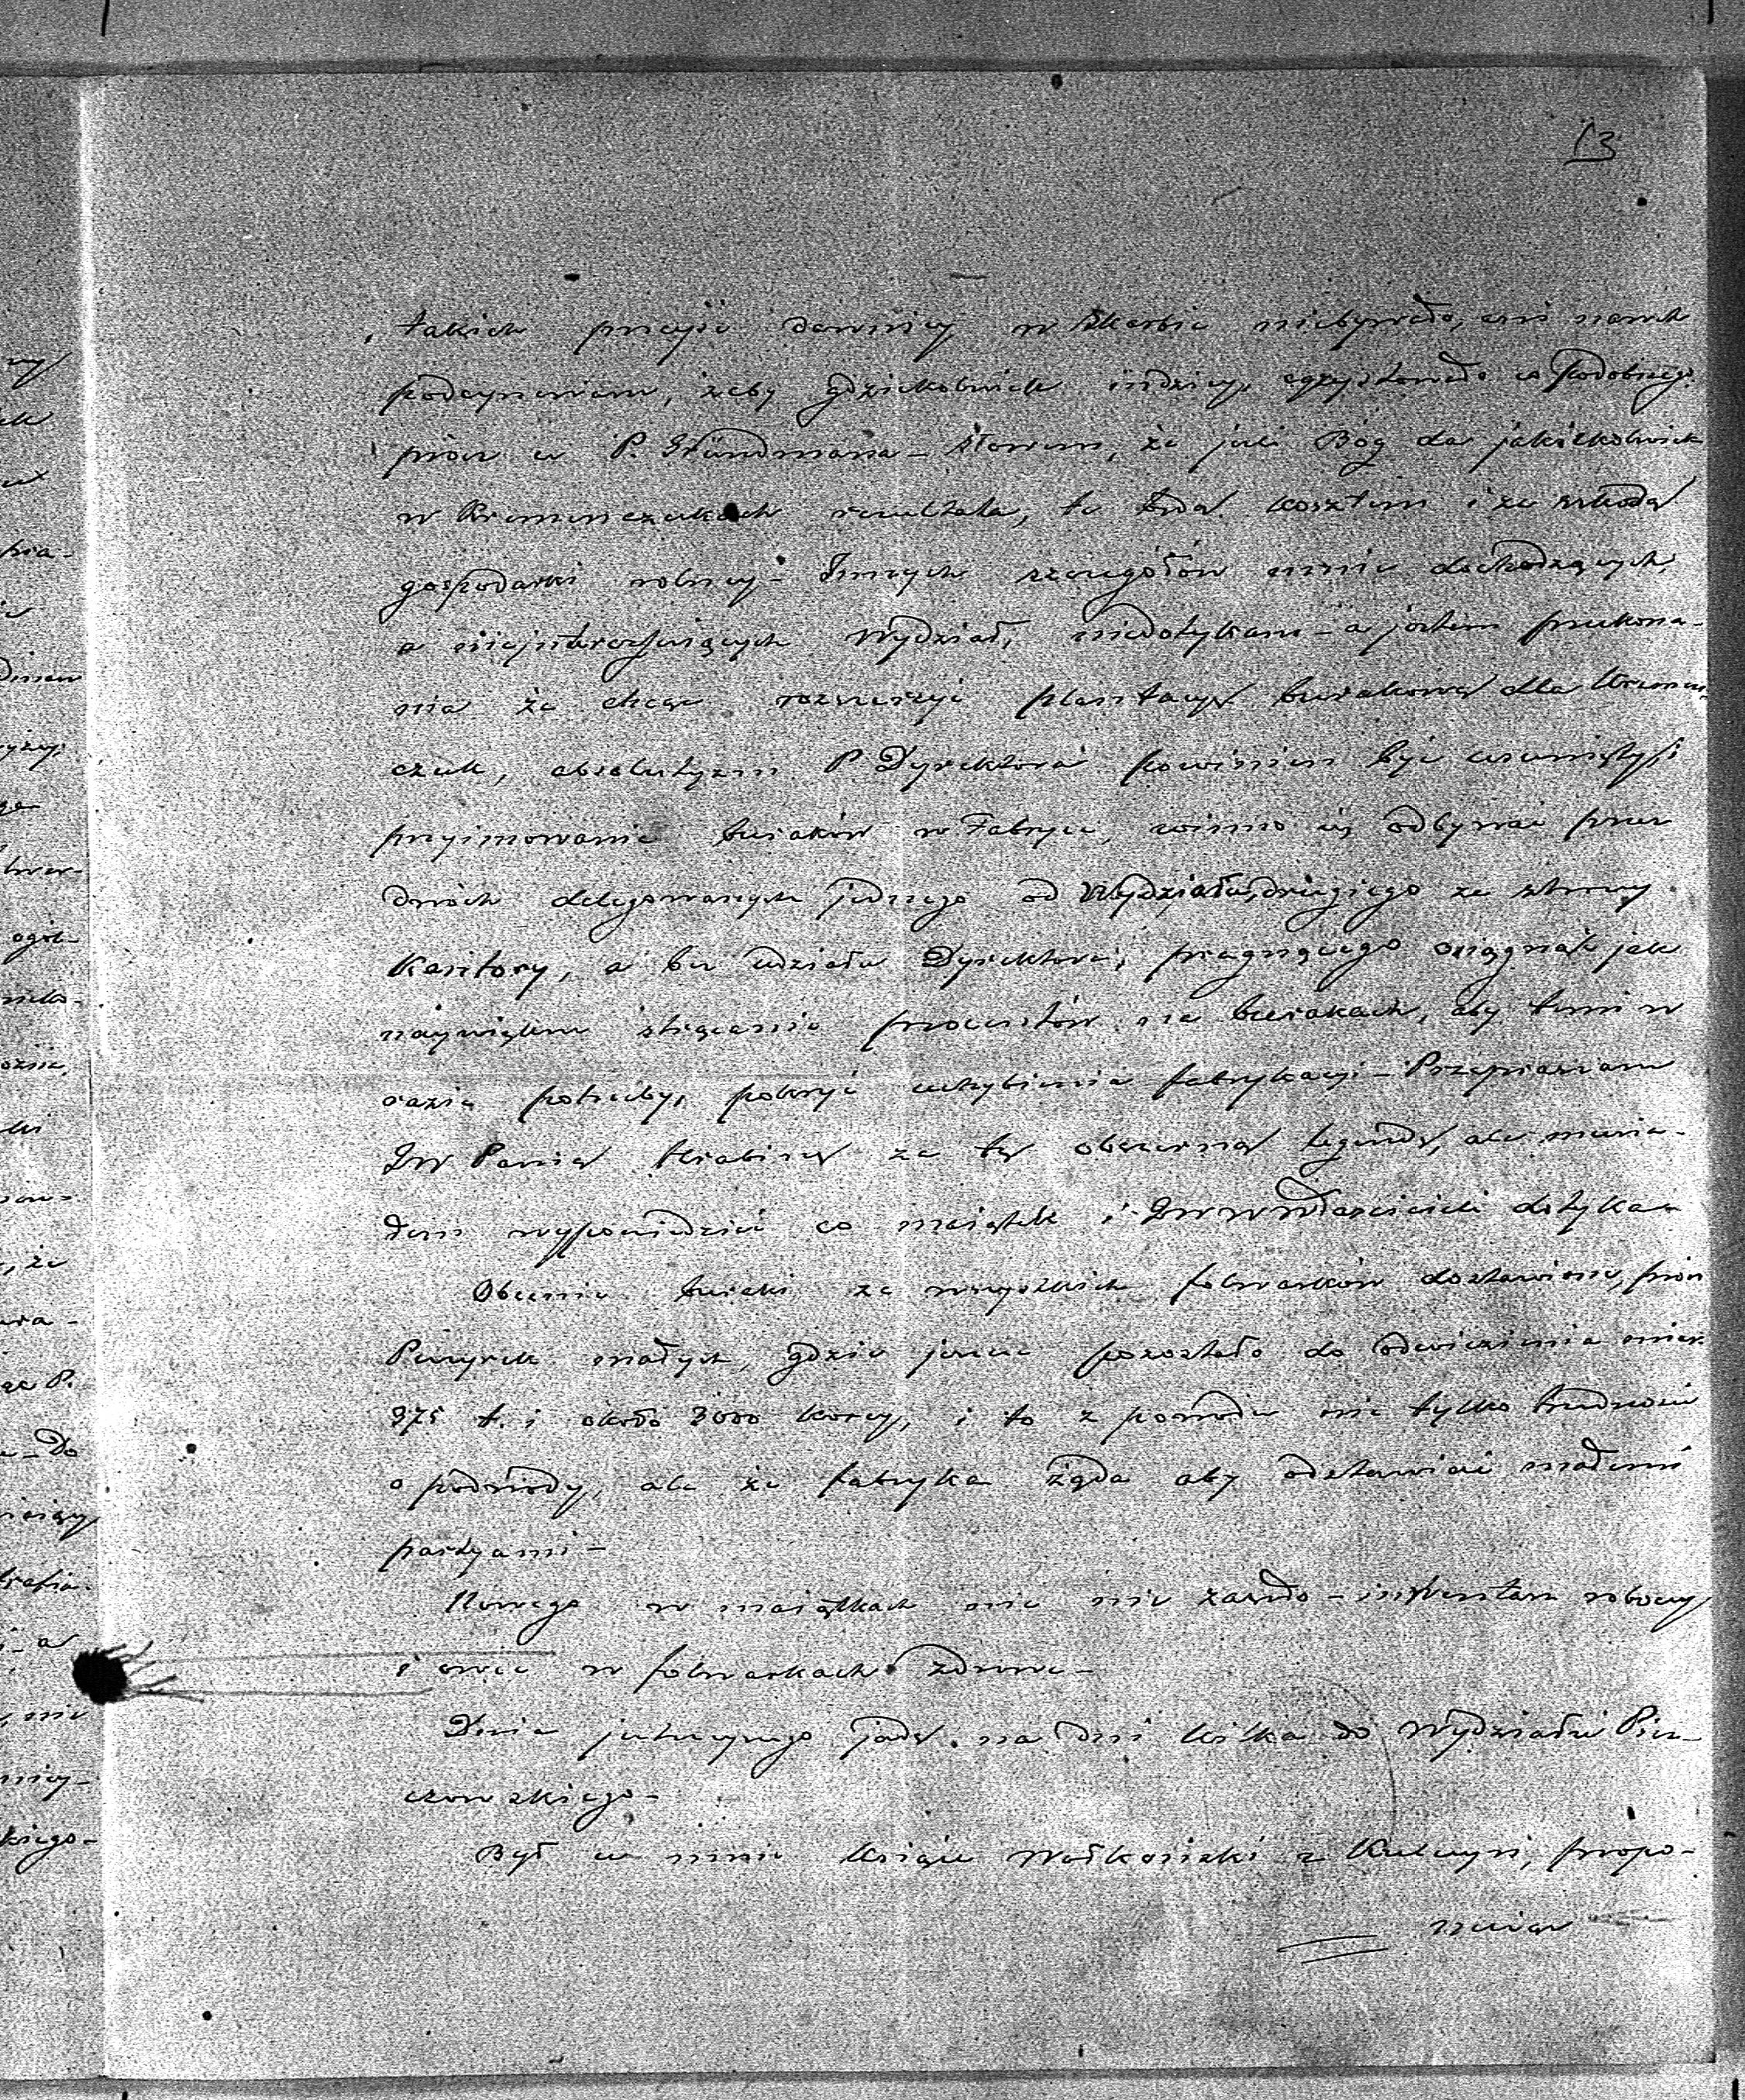 13
takich przejść dawniej w Skarbie niebywało, ani nawet
podeymuiem, żeby gdziekolwiek indziey egzystowało co podobnego
prócz u P. Stündmana – słowem, że jeśli Bóg da jakiekolwiek
w Kremenczukach rezultata, to będą kosztem i ze szkodą
gospodarki rolnej – Innych szczegółów mnie dochodzących,
a nieinteresujących Wydział, niedotykam – a jestem przekona-
nia że chcąc rozszerzyć plantacyę burakową dla Kremen-
czuk, absolutyzm P. Dyrektora powinien być usunięty, i
przyimowanie buraków w Fabryce, winno się odbywać przez
dwóch delegowanych jednego od Wydziału, drugiego ze strony
Kantory, a bez udziału Dyrektora, pragnącego osiągnąć jak
naywiększe strącanie procentów na burakach, aby temi w
razie potrzeby, pokryć uchybienia fabrykacyi – Przepraszam
JW Panią Hrabinę za tę obszerną legendę, ale musia-
łem wypowiedzieć co majątek i JWW Właścicieli dotyka –
Obecnie buraki ze wszystkich folwarków dostawione, prócz
Piszyrek małych, gdzie jeszcze pozostało do odwiezienia
375 t. i około 3000 korcy, i to z powodu nie tylko trudności
o podwody, ale że fabryka żąda aby odstawiać małemi
partyami –
Nowego w majątkach nic nie zaszło – inwentarz roboczy
i owce w folwarkach zdrowe –
Dnia jutrzejszego jadę na dni kilka do Wydziału Pin-
czowskiego –
Był u mnie Książe Wołkoński z Kulczyn, propo-
nując